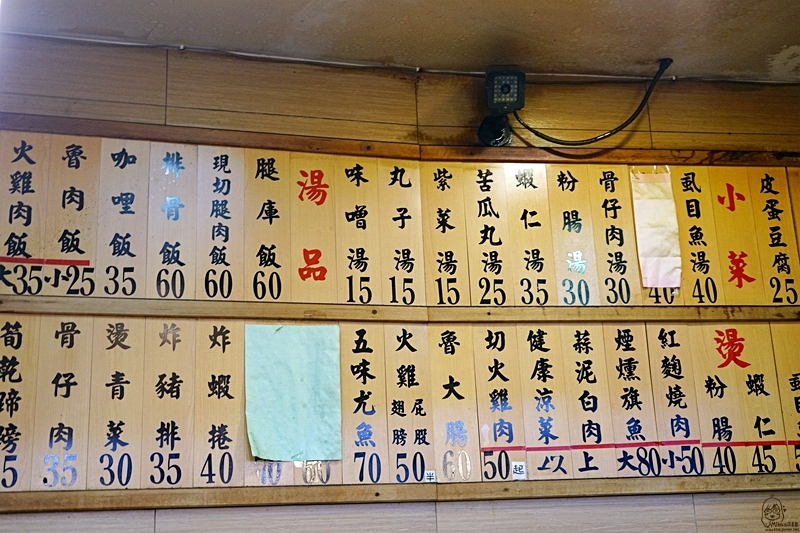 火雞肉飯 大35 小25
魯肉飯
咖哩飯 35
排骨飯 60
現切腿肉飯 60
腿庫飯 60
湯品
味噌湯 15
丸子湯 15
紫菜湯 15
苦瓜丸湯 25
蝦仁湯 35
粉腸湯 30
骨仔肉湯 30
40
虱目魚湯 40
小菜
皮蛋豆腐 25
筍乾蹄膀
骨仔肉 35
燙青菜 30
炸豬排 35
炸蝦捲 40
五味尤魚 70
火雞翅膀屁股 50 半
魯大腸 60
切火雞肉 50 起
健康涼菜
蒜泥白肉
以上
煙燻旗魚
紅麴燒肉
大80 小50
燙
粉腸 40
蝦仁 45